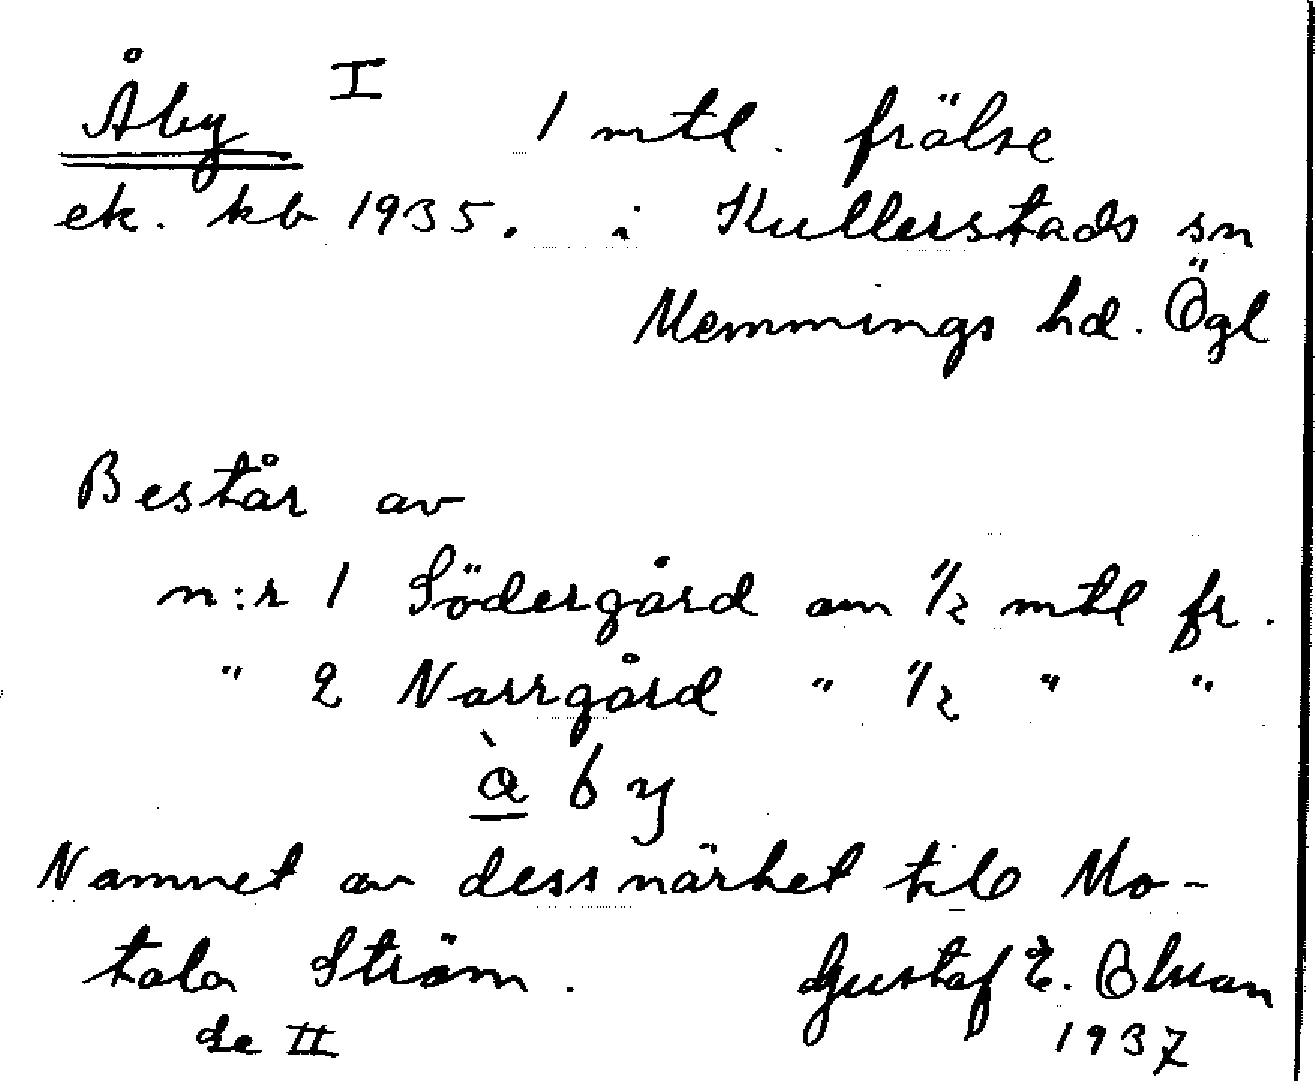 Åby I 1 mtl. frälse
ek. kb 1935. i Kullerstads sn
Memmings hd. Ögl
Består av
n:r 1 Södergård om 1/2 mtl fr.
" 2 Norrgård " 1/2 " "
à b y
Namnet av dess närhet till Mo-
tala Ström. Gustaf E.
se II 1937